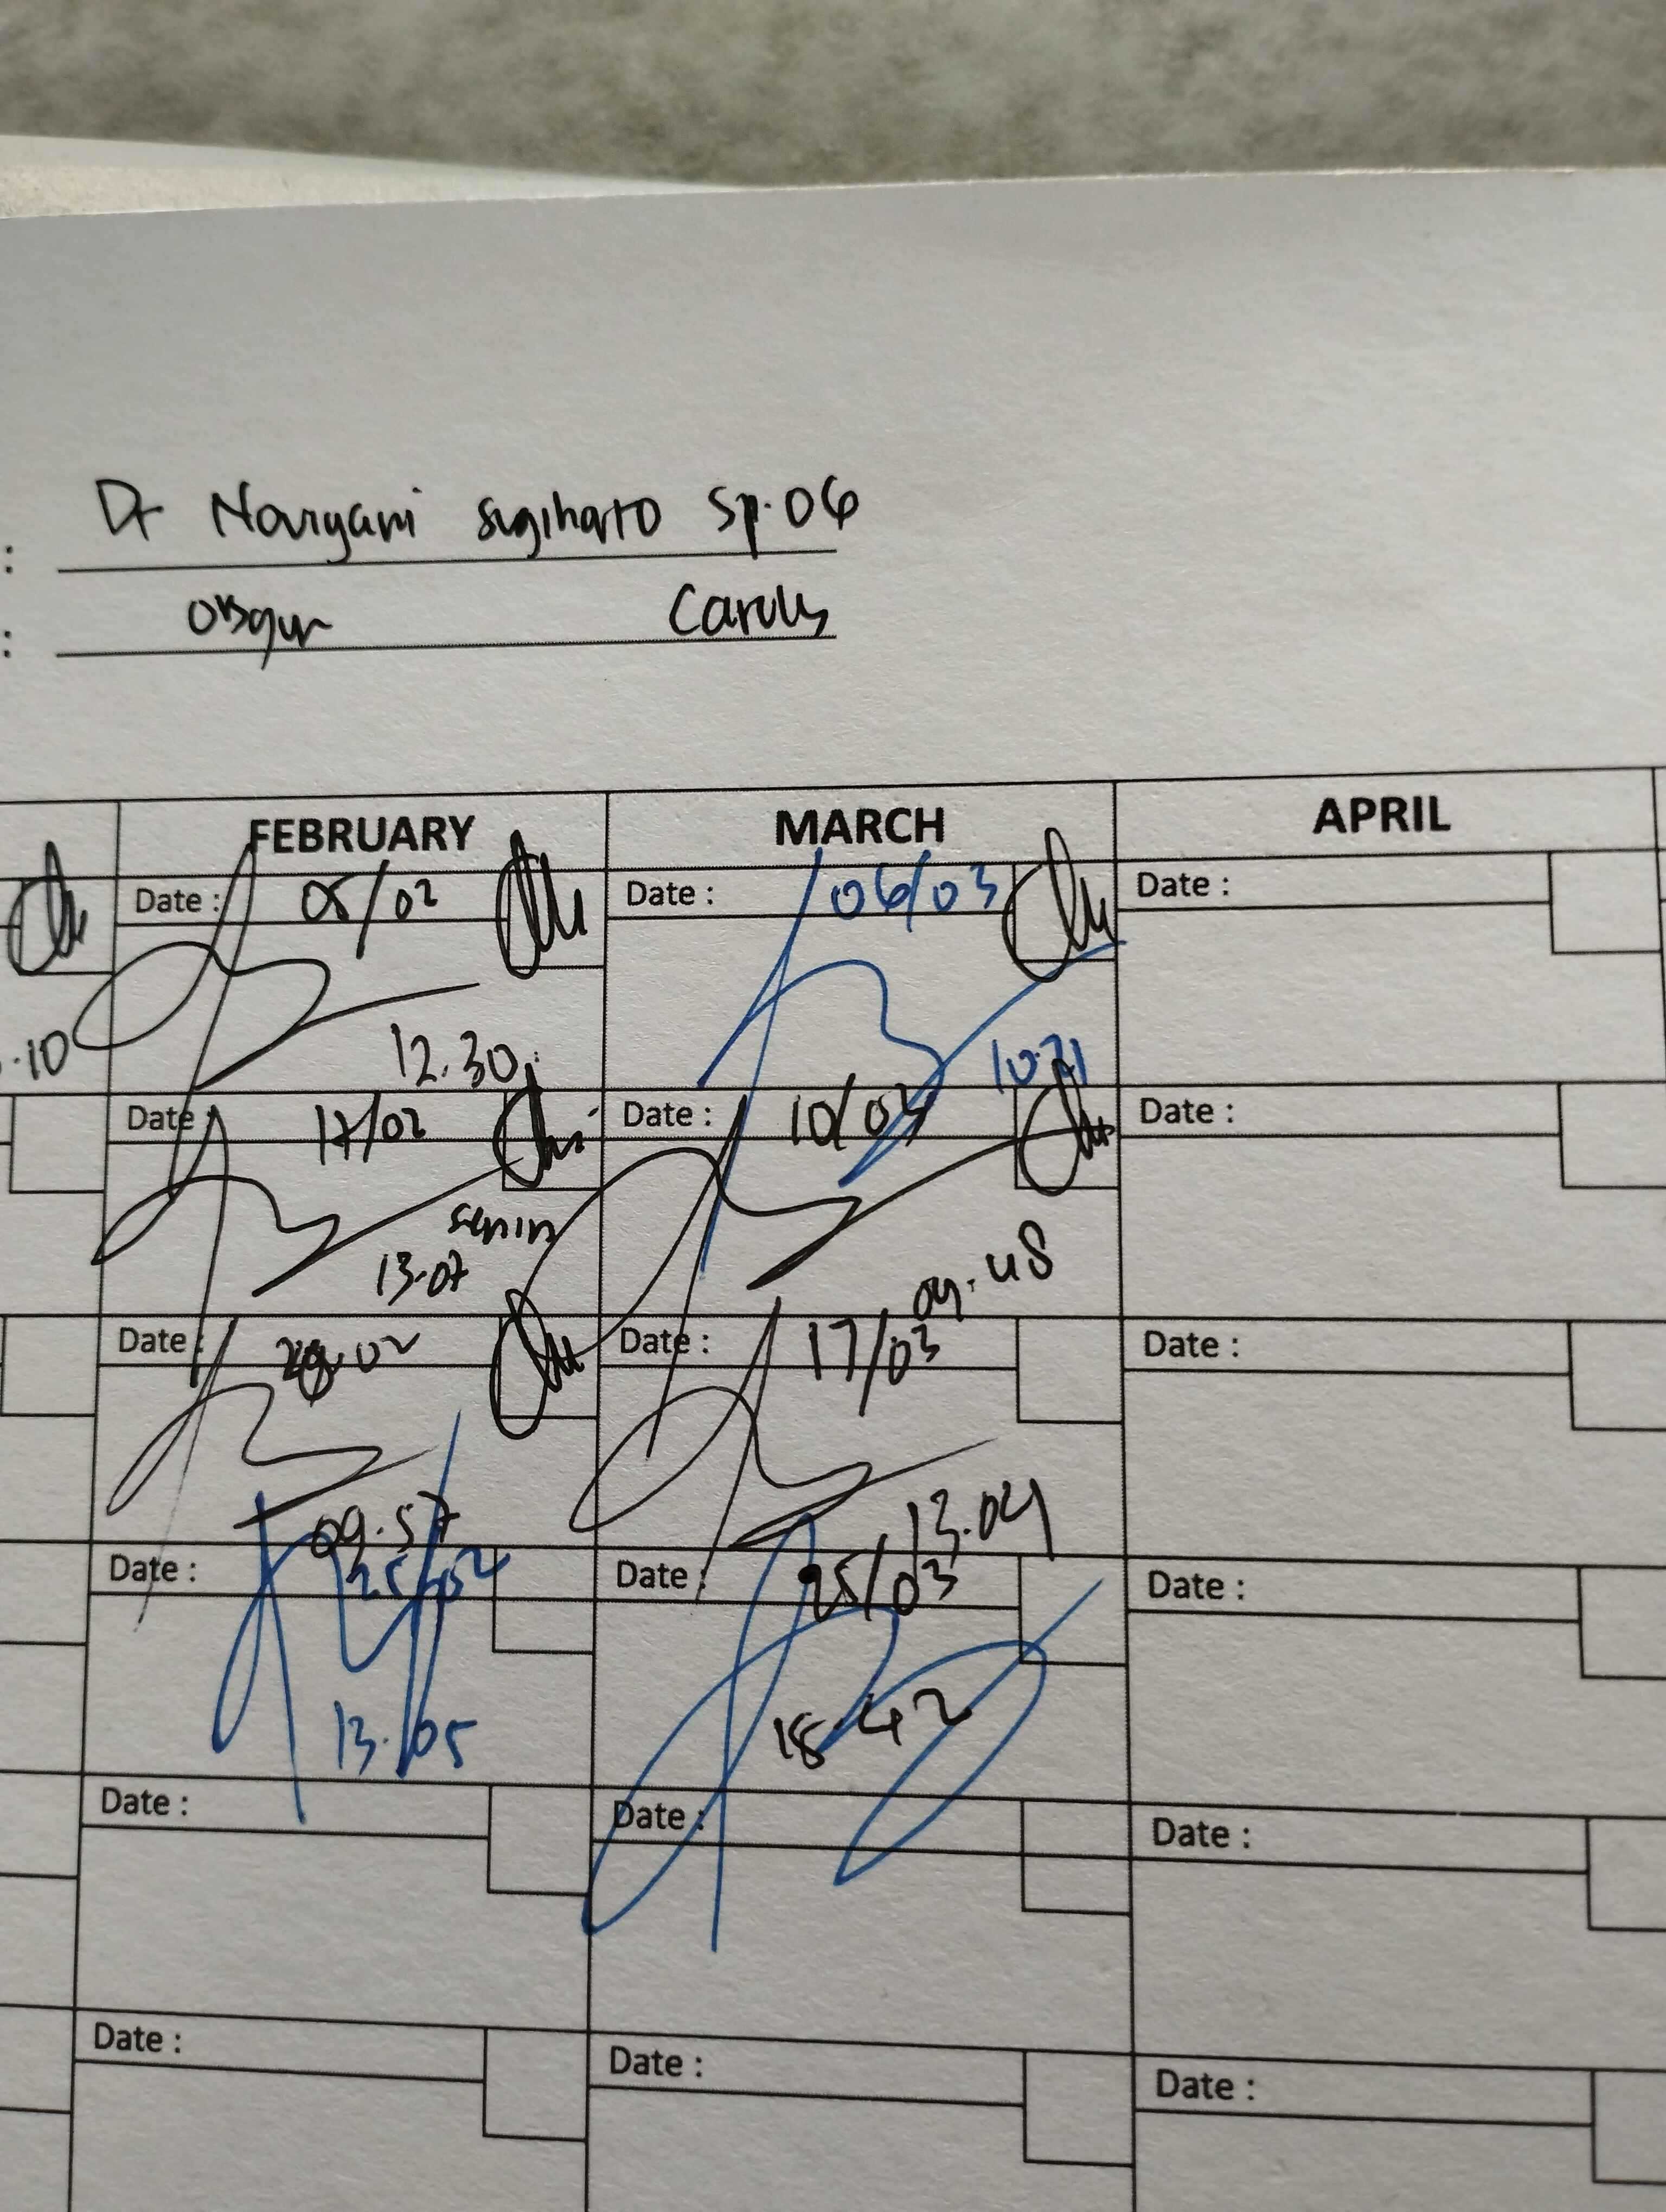 : Dr Noviyani Sugiharto Sp.OG
: Obsgyn Carolus
FEBRUARY MARCH APRIL
Date : 05/02 Date : 06/03 Date :
.10 12.30 10.21
Date : 17/02 Date : 10/03 Date :
senin
13.07 09.48
Date : 02 Date : 17/03 Date :
09.57 13.04
Date : 25/02 Date : 25/03 Date :
13.05 18.42
Date : Date : Date :
Date : Date : Date :